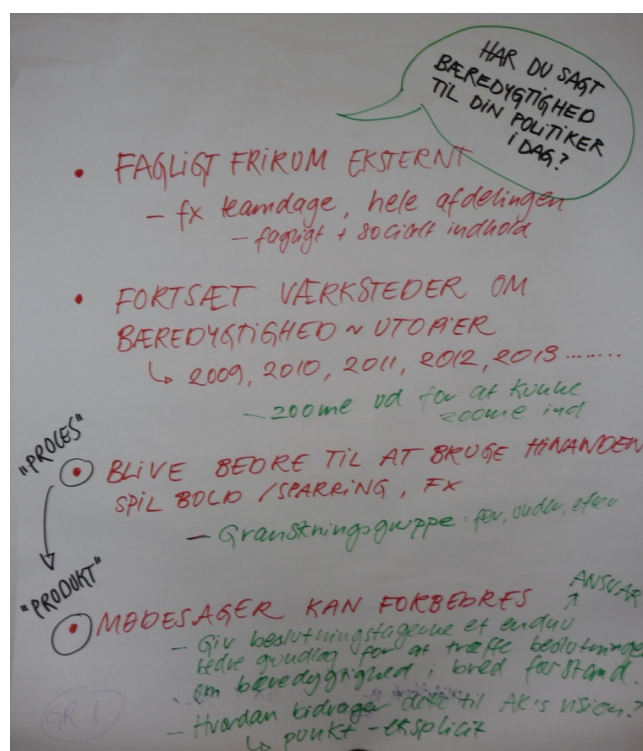 HAR DU SAGT
BÆREDYGTIGHED
TIL DIN POLITIKER
I DAG?
• FAGLIGT FRIRUM EKSTERNT
– fx teamdage, hele afdelingen
– fagligt + socialt indhold
• FORTSÆT VÆRKSTEDER OM
BÆREDYGTIGHED ~ UTOPIER
↳ 2009, 2010, 2011, 2012, 2013.......
– zoome ud for at kunne
zoome ind
"PROCES"
• BLIVE BEDRE TIL AT BRUGE HINANDEN
SPIL BOLD / SPARRING, FX
– Granskningsgruppe: før, under, efter
"PRODUKT"
ANSVAR
• MØDESAGER KAN FORBEDRES
– Giv beslutningstagerne et endnu
bedre grundlag for at træffe beslutninger
om bæredygtighed i bred forstand.
– Hvordan bidrager dette til AK's vision?
↳ punkt – eksplicit
GR 1